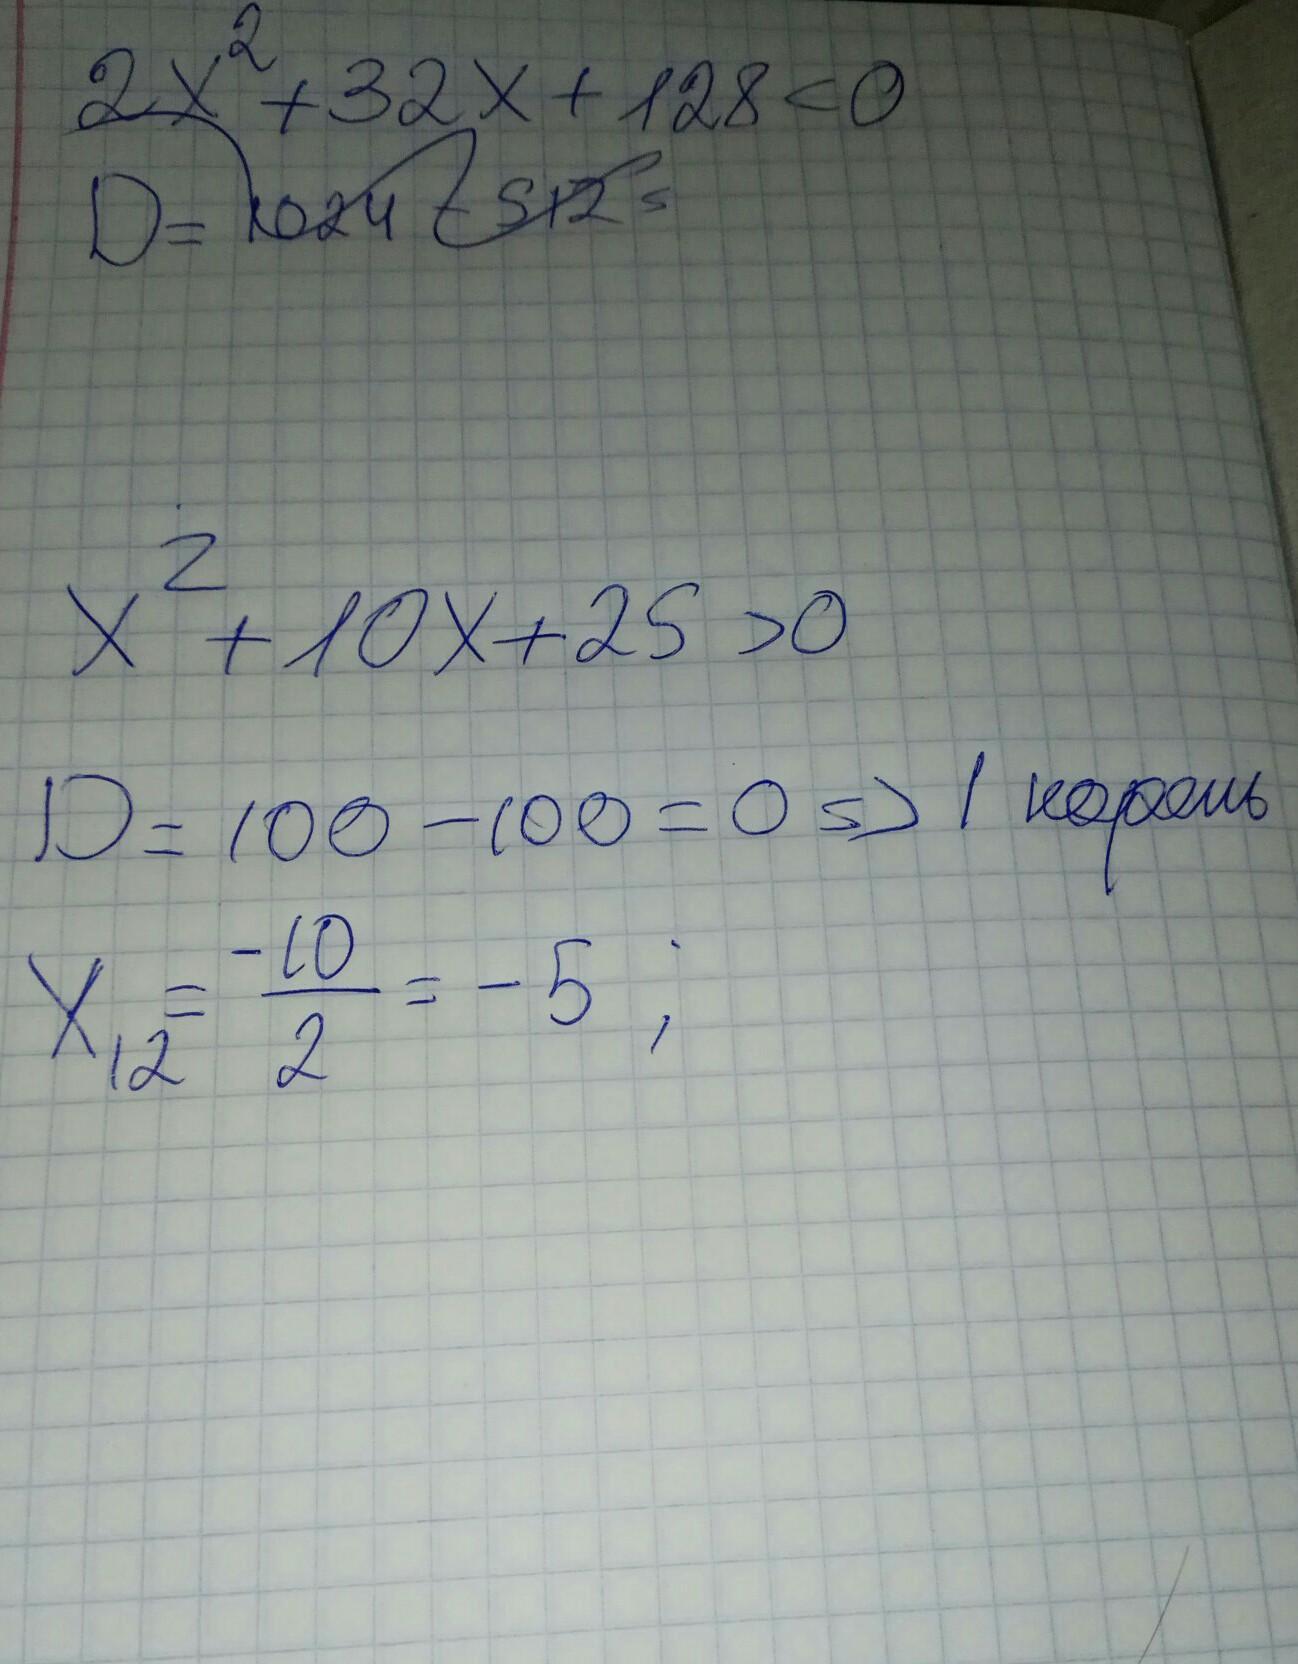 2x²+32x+128<0
D=1024-512=
x²+10x+25>0
D=100-100=0=>1 корень
x₁₂=-10/2=-5;